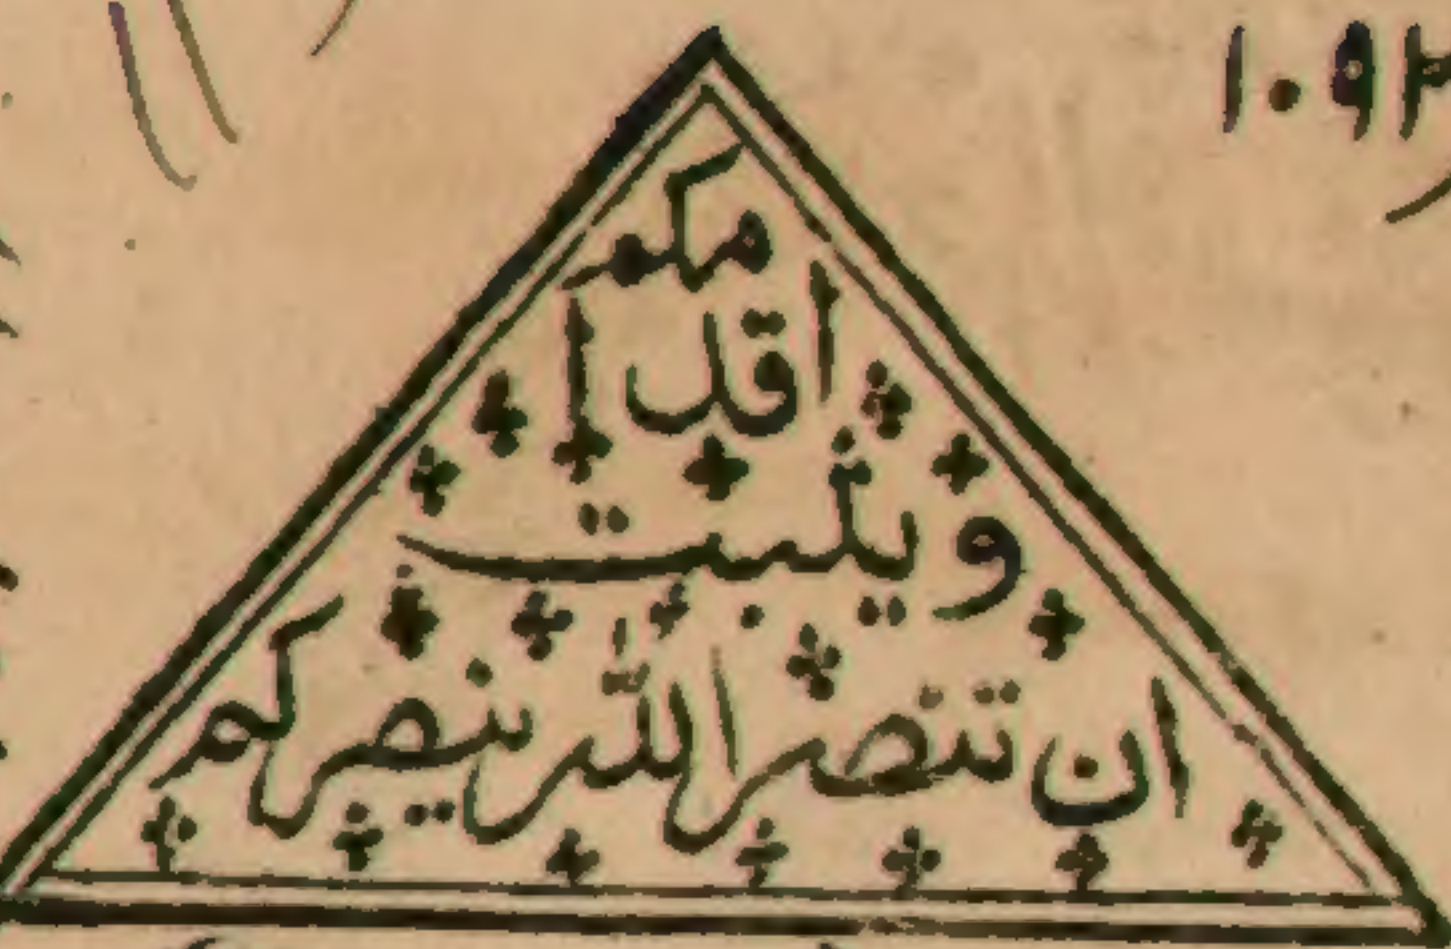 ١٠٩٣
ان تنصر الله ينصركم
ويثبت
اقدا
مكم